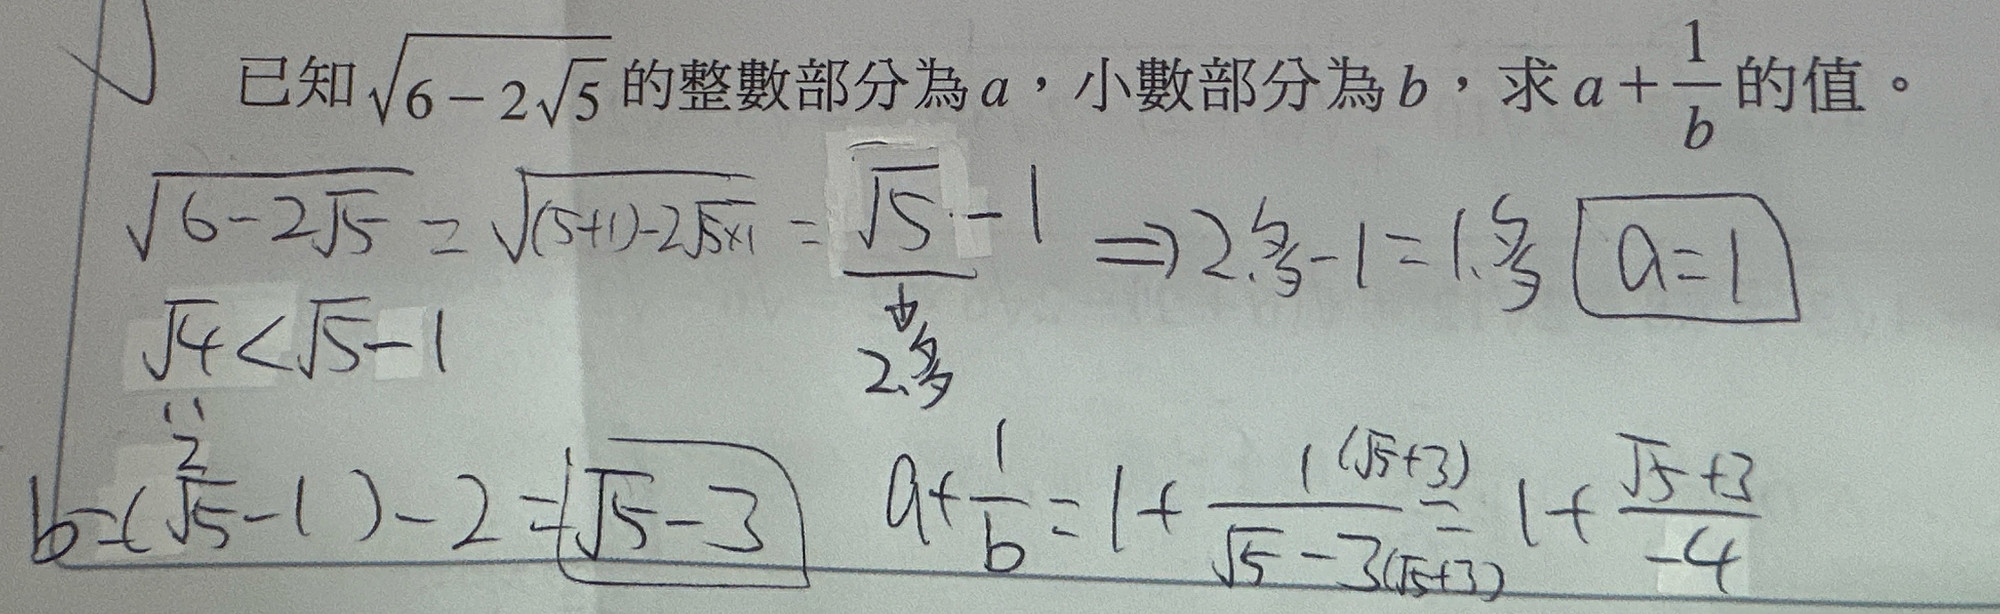 已知√(6-2√5)的整數部分為a,小數部分為b,求a+1/b的值。
√(6-2√5) = √((5+1)-2√(5×1)) = √5-1 ⇒ 2.多-1=1.多 a=1
↓
2.多
√4<√5-1
"
2
b=(√5-1)-2=√5-3 a+1/b=1+1(√5+3)/(√5-3(√5+3))=1+(√5+3)/-4